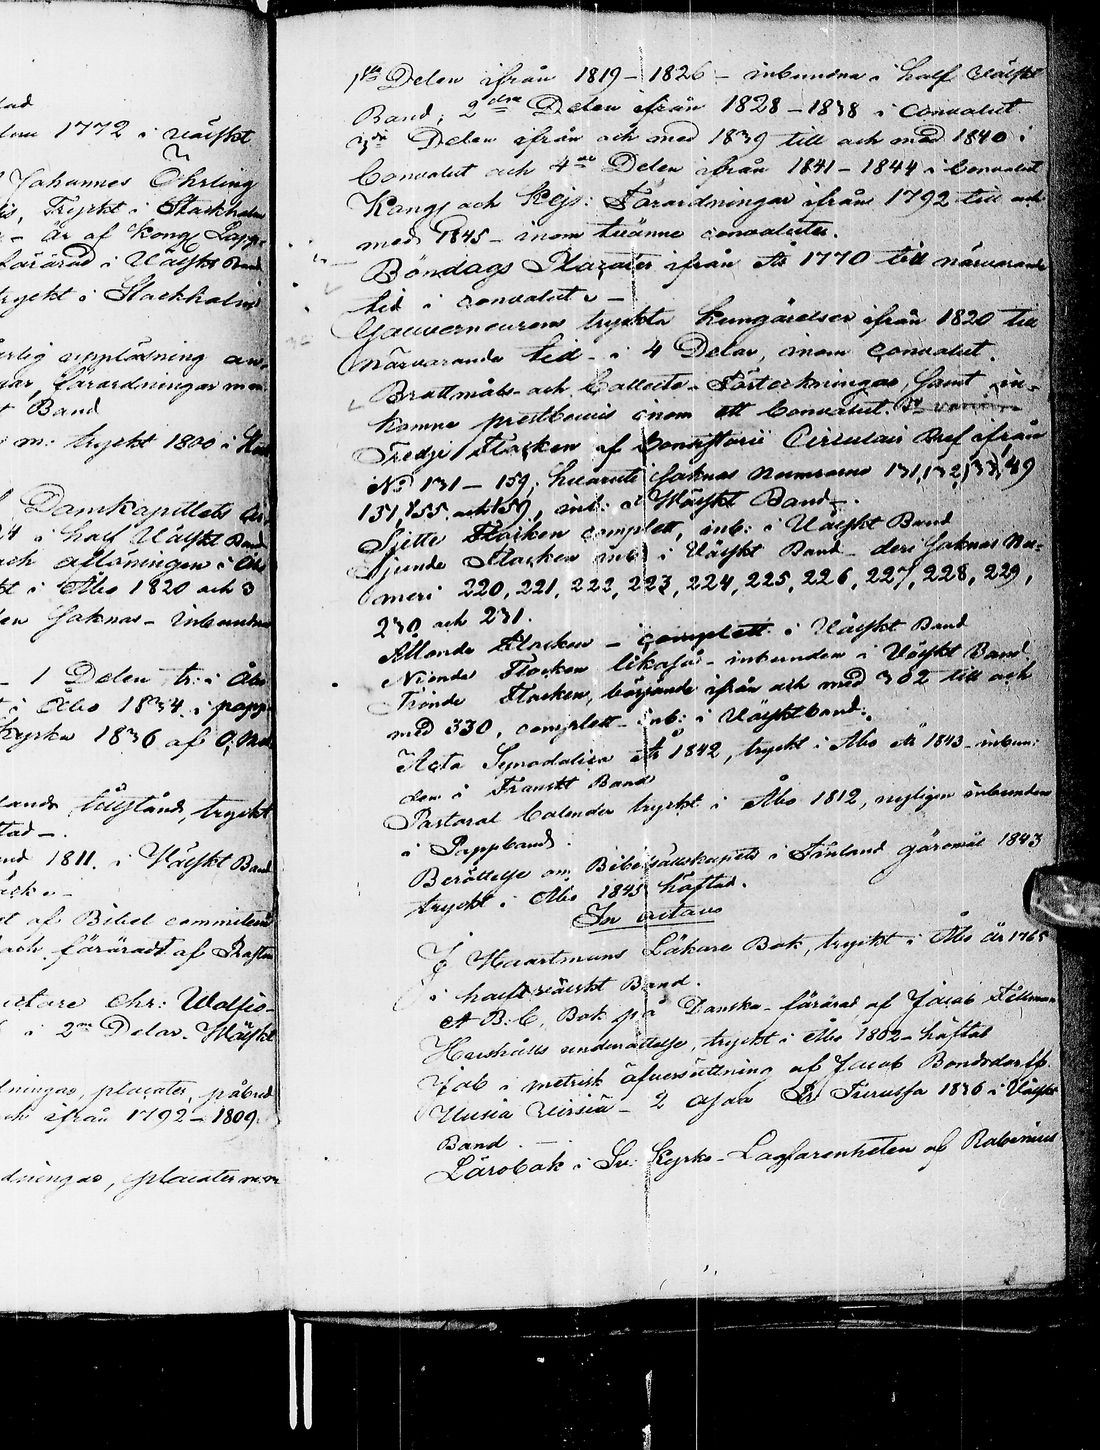 lad
1772 i Wälskt
Johannes Öhrling
Tryckt i Stockholm
är af Kong
förärad i Wälskt Band
tryckt i Stockholm
upplösning
förordningar
Band
m: tryckt 1800 i
Domkapitlets
i half Wälskt Band
och aflöningen i
i Åbo 1820 och 3
saknas - inbundna
1 Delen tr: i Åbo
i Åbo 1834 i papp
Kyrko 1836 af
tillstånd, tryckt
1811. i Wälskt Band
af Bibel committeen
och föräradt af Prosten
chr: Wolfis-
i 2ne Delar. Wälskt
placater, påbud
ifrån 1792 - 1809.
placater m.m
1sta Delen ifrån 1819 - 1826 - inbunden i half Wälskt
Band, 2dra Delen ifrån 1828 - 1838 i Convolut
3die Delen ifrån och med 1839 till och med 1840 i
Convolut och 4de Delen ifrån 1841 - 1844 i Convolut
Kongl och Kejs: Förordningar ifrån 1792 till och
med 1845 - inom tvänne convoluter.
Böndags Placater ifrån År 1770 till närvarande
tid i convolut -
Gouverneurens tryckta Kungörelser ifrån 1820 till
närvarande tid - i 4 Delar, inom Convolut.
Brottmåls- och Collecte- Förteckningar, samt in-
komne prestbevis inom ett Convolut.
Tredje Flocken af Consistorii Circulair Bref ifrån
No 131 - 159; hvaruti saknas Numrorne 131, 132, 133, 149
151, 155 och 159, inb: i Wälskt Band -
Sjette Flocken complett, inb: i Wälskt Band
Sjunde Flocken inb: i Wälskt Band - deri saknas Nu-
meri 220, 221, 222, 223, 224, 225, 226, 227, 228, 229,
230 och 231.
Åttonde Flocken - complett i Wälskt Band
Nionde Flocken likaså - inbunden i Wälskt Band
Tionde Flocken, börjande ifrån och med 302 till och
med 330, complett - inb: i Wälsktband:
Acta Synodalica År 1842, tryckt i Åbo År 1843 - inbun:
den i Franskt Band
Pastoral Calender tryckt i Åbo 1812, nyligen inbunden
i Pappband.
Berättelse om Bibelsällskapets i Finland göromål 1843
tryckt i Åbo 1845 häftad.
In octavo
J Haartmans Läkare Bok, tryckt i Åbo år 1765
i halft wälskt Band.
A B C Bok på Danska - förärad af Jacob Fellman
Hushålls underrättelse, tryckt i Åbo 1802 - häftad
Job i metrisk öfversättning af Jacob Bonsdorff.
Uusia Virsiä - 2 osaa Turusa 1836 i Wälskt
Band. -
Lärobok i Sv: Kyrko - Lagfarenheten af Rabenius